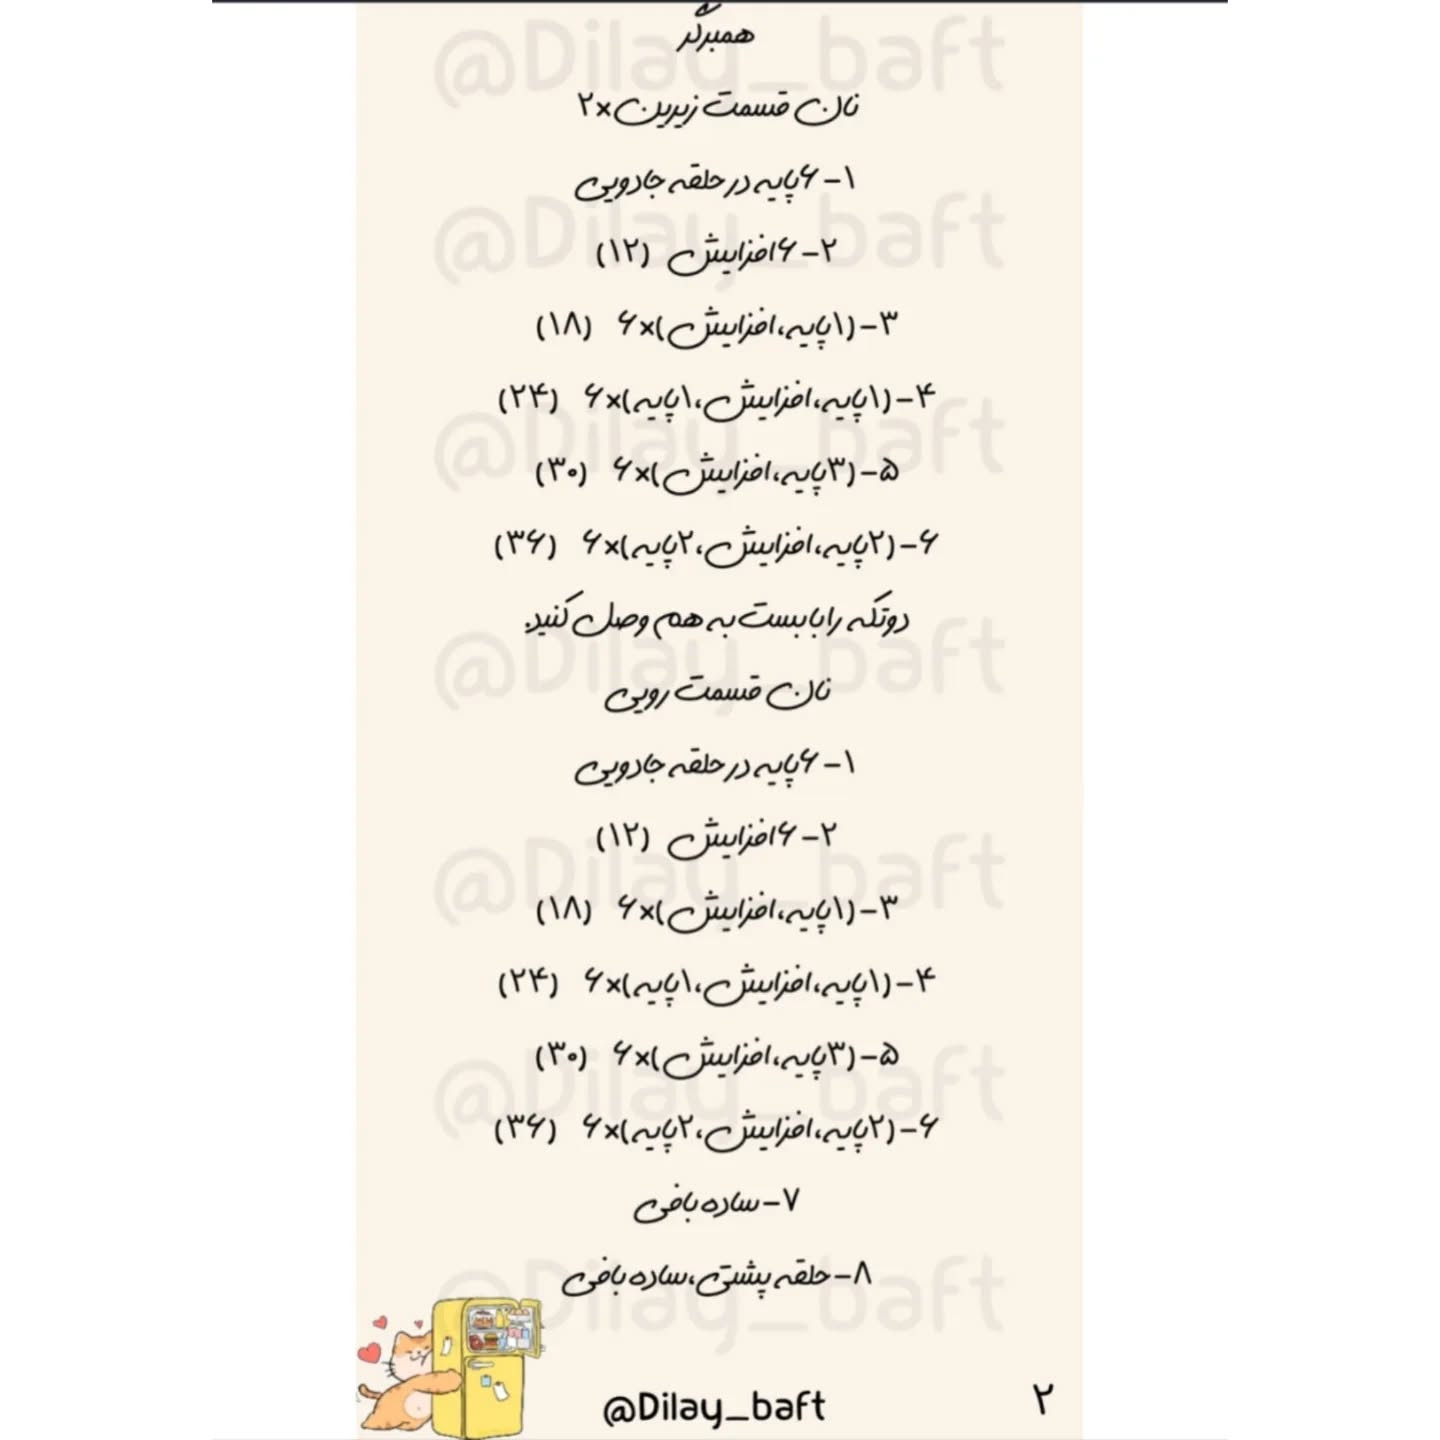 همبرگر
نان قسمت زیرین×۲
۱-۶پایه در حلقه جادویی
۲-۶افزایش (۱۲)
۳-(۱پایه،افزایش)×۶ (۱۸)
۴-(۱پایه،افزایش،۱پایه)×۶ (۲۴)
۵-(۳پایه،افزایش)×۶ (۳۰)
۶-(۲پایه،افزایش،۲پایه)×۶ (۳۶)
دوتکه را با بست به هم وصل کنید.
نان قسمت رویی
۱-۶پایه در حلقه جادویی
۲-۶افزایش (۱۲)
۳-(۱پایه،افزایش)×۶ (۱۸)
۴-(۱پایه،افزایش،۱پایه)×۶ (۲۴)
۵-(۳پایه،افزایش)×۶ (۳۰)
۶-(۲پایه،افزایش،۲پایه)×۶ (۳۶)
۷-ساده بافی
۸-حلقه پشتی،ساده بافی
@Dilay_baft
۲